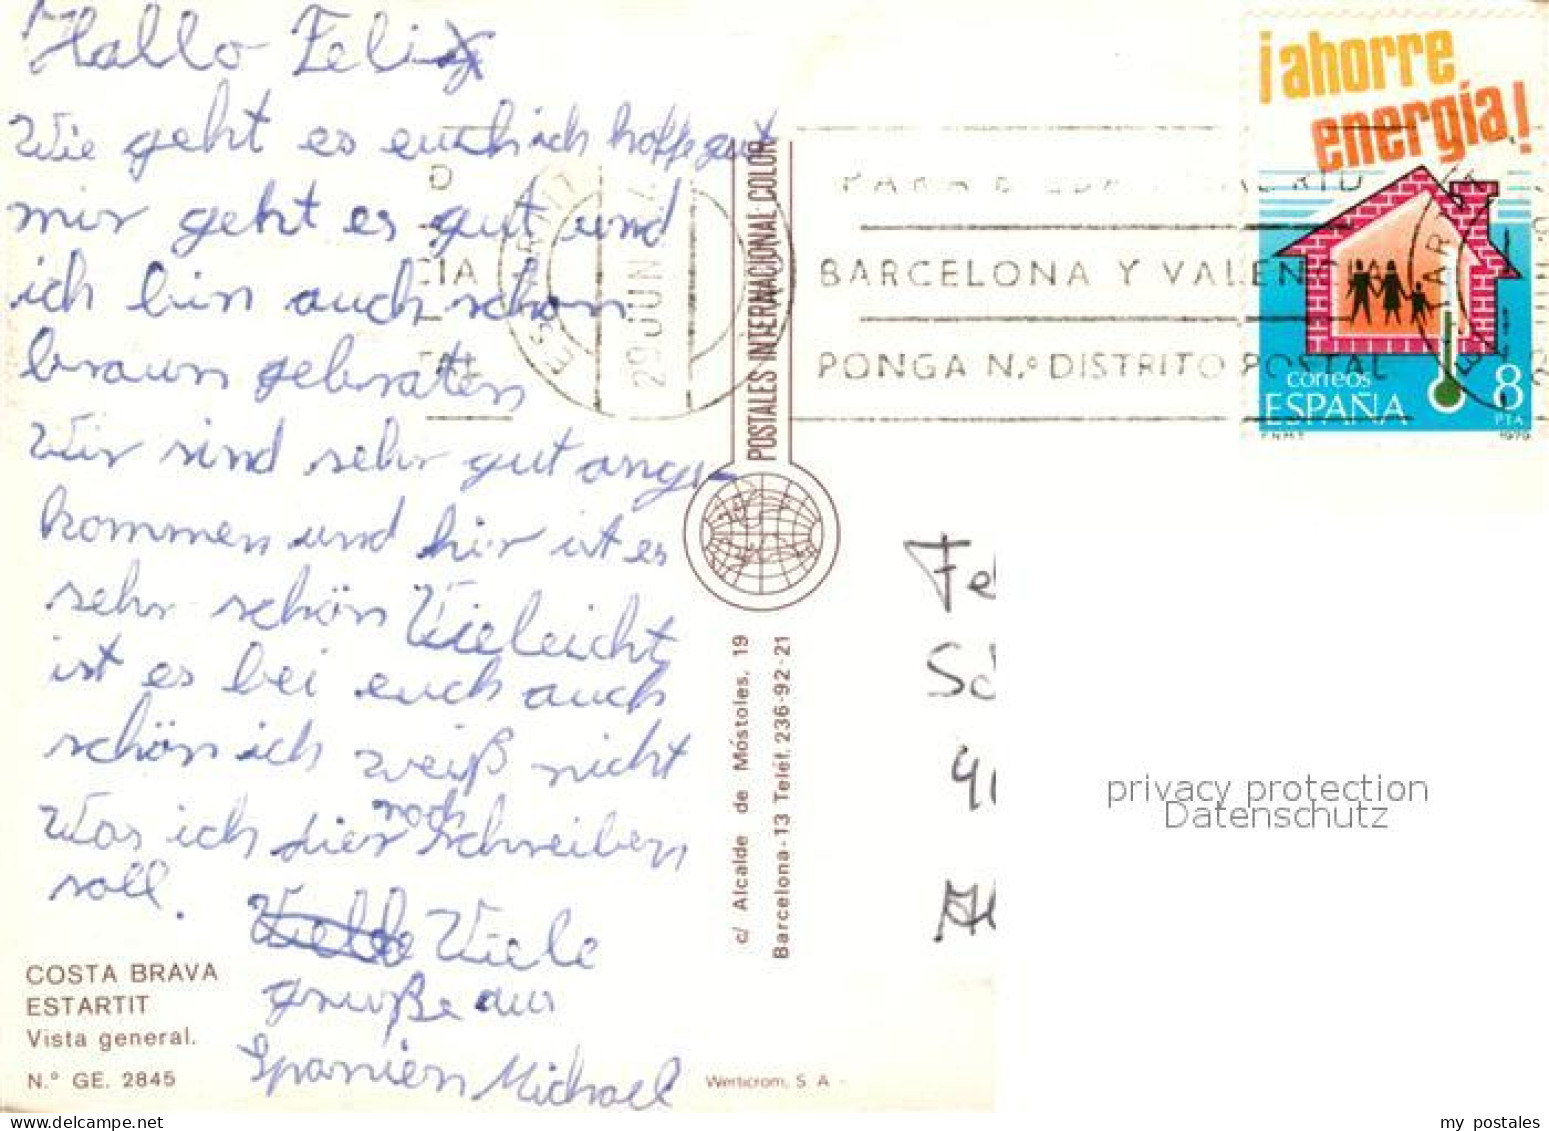 Hallo Felix
Wie geht es euch ich hoffe gut
mir geht es gut und
ich bin auch schon
braun gebraten
Wir sind sehr gut ange-
kommen und hir ist es
sehr schön Vieleicht
ist es bei euch auch
schön ich weiß nicht
Was ich dier noch schreiben
soll.
Viele
gruße aus
Spanien Michael
COSTA BRAVA
ESTARTIT
Vista general.
N.º GE. 2845
POSTALES INTERNACIONAL COLOR
c/ Alcalde de Móstoles, 19
Barcelona-13 Teléf. 236-92-21
Werticrom, S. A.
29 JUN
BARCELONA Y VALENCIA
PONGA N.º DISTRITO POSTAL
¡ahorre
energía!
correos
ESPAÑA
8
PTA
F.N.M.T.
1979
Fe
Sc
privacy protection
Datenschutz
my postales